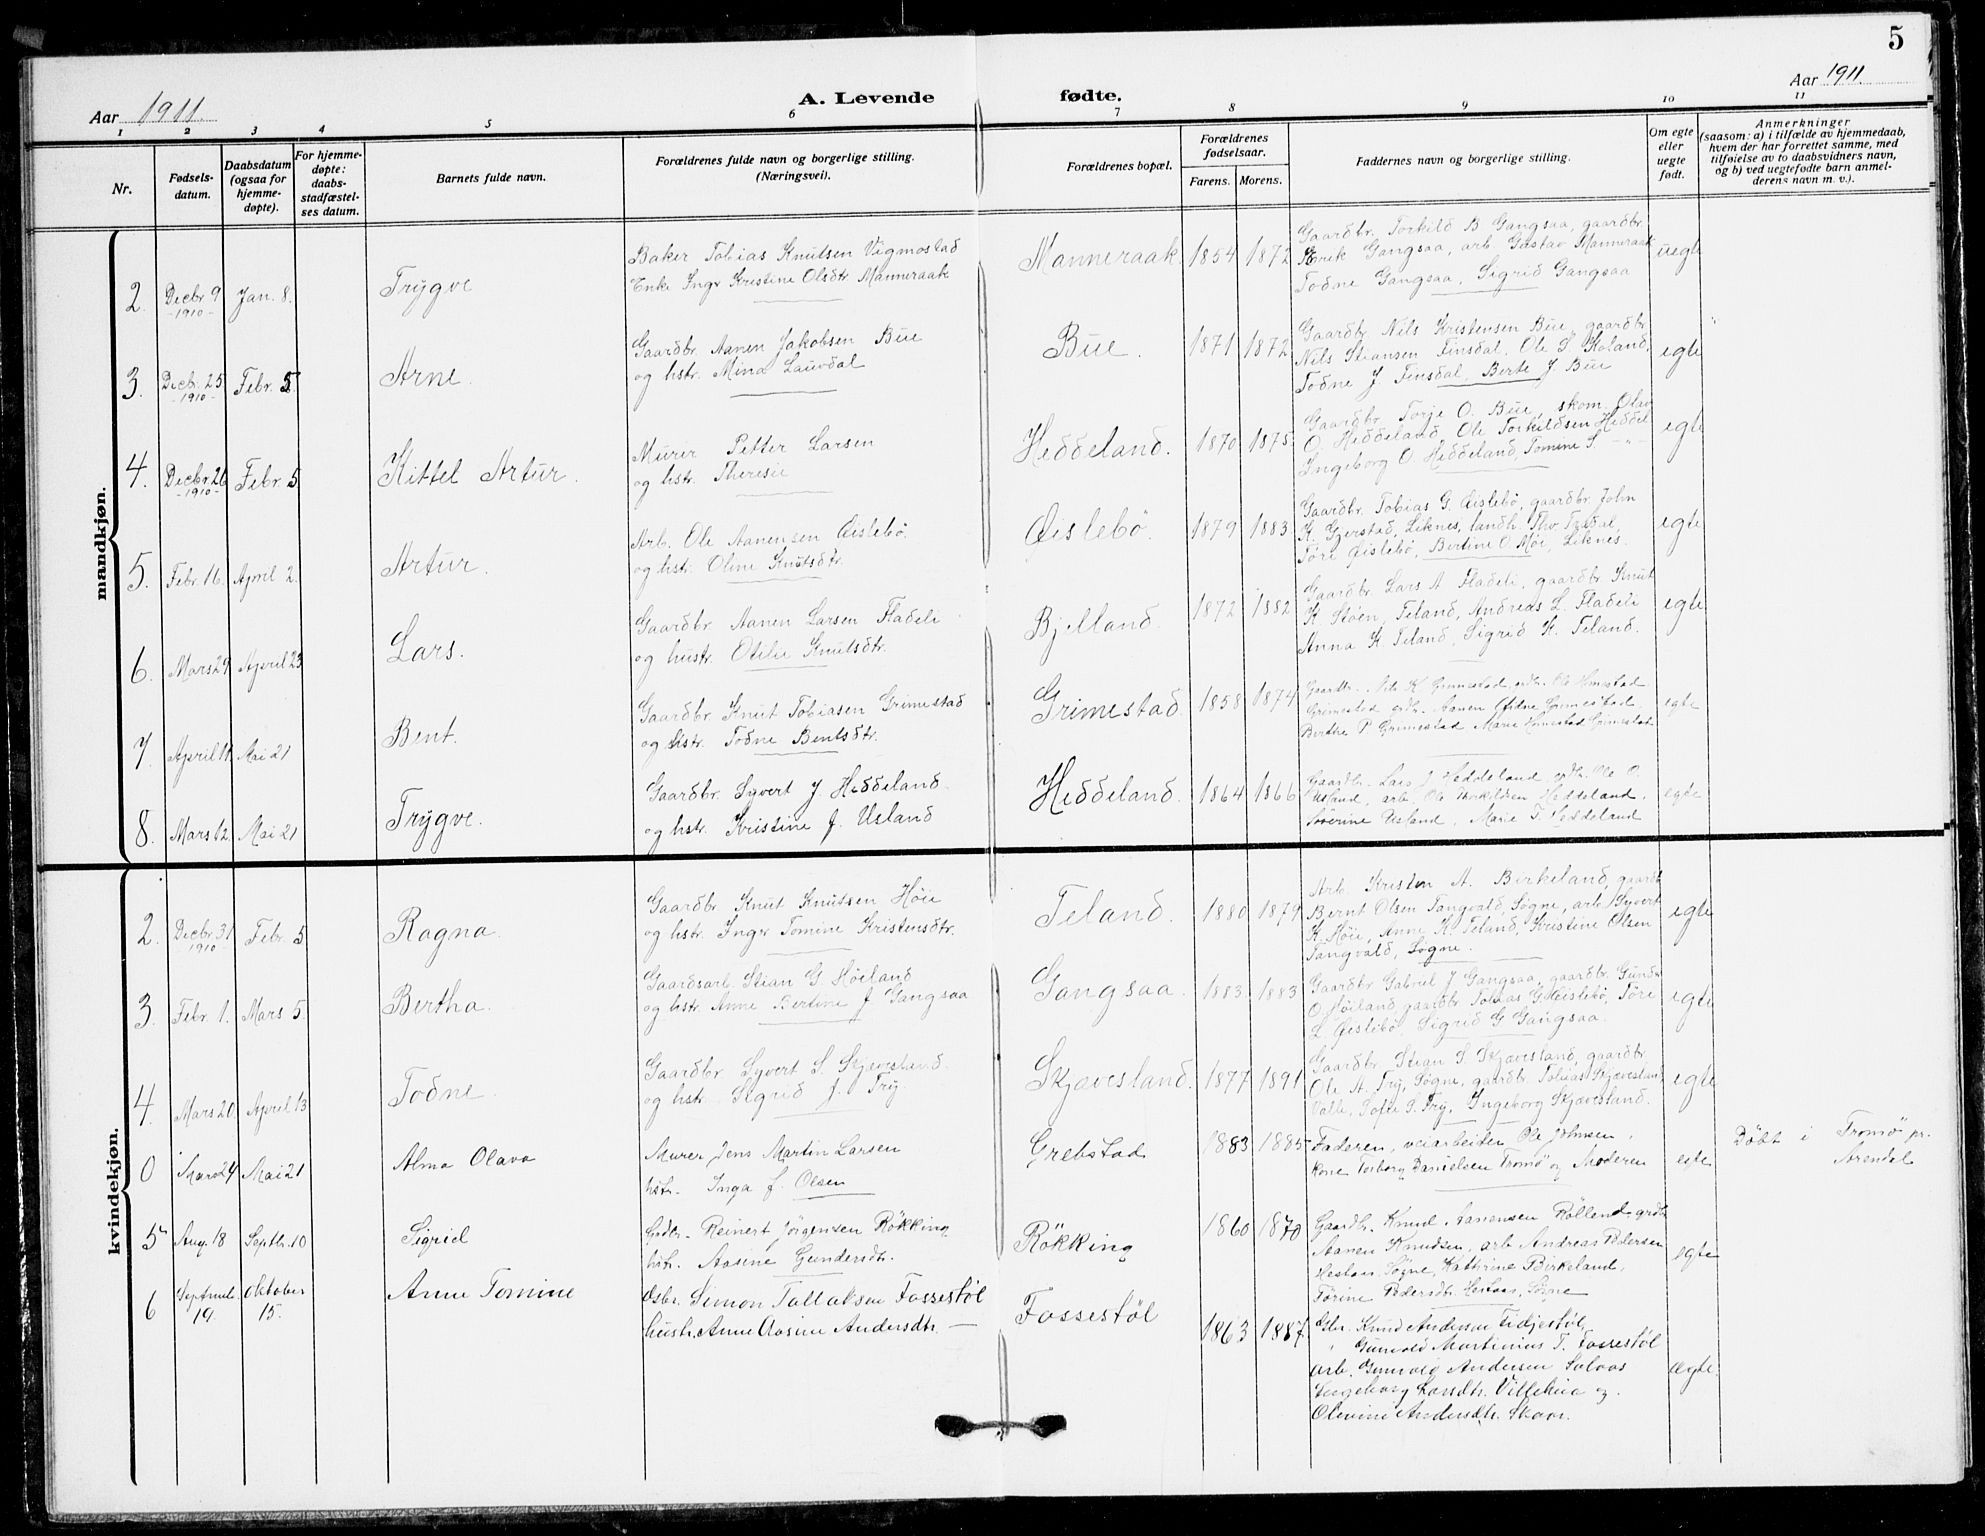 5
Aar 1911.
A. Levende fødte.
Aar 1911.
1 2 3 4 5 6 7 8 9 10 11
Nr.
Fødsels-
datum.
Daabsdatum
(ogsaa for
hjemme-
døpte).
For hjemme-
døpte:
daabs-
stadfæstel-
ses datum.
Barnets fulde navn.
Forældrenes fulde navn og borgerlige stilling.
(Næringsvei).
Forældrenes bopæl.
Forældrenes
fødselsaar.
Farens. Morens.
Faddernes navn og borgerlige stilling.
Om egte
eller
uegte
født.
Anmerkninger
(saasom: a) i tilfælde av hjemmedaab,
hvem der har forrettet samme, med
tilføielse av to daabsvidners navn,
og b) ved uegtefødte barn anmel-
derens navn m. v.).
mandkjøn.
2. Decbr. 9 -1910- Jan. 8. Trygve
Baker Tobias Knutsen Vigmostad
Enke Ingr Kristine Olsdtr Manneraak
Manneraak. 1854 1872
Gaardbr. Torkild B Gangsaa, gaardbr.
Erik Gangsaa, arb. Gustav Manneraak
Todne Gangsaa, Sigrid Gangsaa
uegte
3. Decbr. 25 -1910- Febr. 5 Arne.
Gaardbr Aanen Jakobsen Bue
og hstr. Mina Lauvdal
Bue. 1871 1872
Gaardbr. Nils Kristensen Bue, gaardbr
Nils Stiansen Finsdal, Ole S. Holand,
Todne J. Finsdal, Berte J Bue
egte
4. Decbr. 26 -1910- Febr. 5 Kittel Artur.
Murer Petter Larsen
og hstr. Theresie
Heddeland. 1870 1875
Gaardbr. Torje O. Bue, skom. Olav
O. Heddeland, Ole Torkildsen Heddel
Ingeborg O. Heddeland, Tomine S. -"-
egte
5. Febr. 16. April 2. Artur.
Arb. Ole Aanensen Øislebö.
og hstr. Oline Knutsdtr.
Øislebö. 1879 1883
Gaardbr. Tobias G. Øislebö, gaardbr. John
K. Gjerstad, Liknes, landh. Thv. Tradal,
Töre Øislebö, Bertine O. Möi, Liknes.
egte
6. Mars 29 April 23 Lars.
Gaardbr. Aanen Larsen Fladeli
og hustr. Otilie Knutsdtr.
Bjelland. 1872 1882
Gaardbr. Lars A Fladeli, gaardbr Knut
K Støen, Teland, Andreas L. Fladeli
Anna K Teland, Sigrid K. Teland.
egte
7. April 11. Mai 21 Bent.
Gaardbr. Knut Tobiasen Grimestad
og hstr. Todne Bentsdtr.
Grimestad. 1858 1874
Gaardbr. Nils K Grimestad, grdbr. Ole Himestad
Grimestad grdbr. Aanen Grimestad.
Berthe P Grimestad Marie Himestad Grimestad
egte
8. Mars 12. Mai 21 Trygve.
Gaardbr. Syvert J. Heddeland.
og hstr. Kristine J. Usland
Heddeland. 1864 1866
Gaardbr. Lars J. Heddeland, grdbr. Ole O.
Usland, arb. Ole Thorkildsen Heddeland.
Söverine Usland, Marie T. Heddeland
egte
kvindekjøn.
2. Decbr. 31 1910 Febr. 5 Ragna.
Gaardbr. Knut Knutsen Höie
og hstr. Inger Tomine Kristensdtr.
Teland. 1880 1879
Arb. Kristen A. Birkeland, gaardb
Bernt Olsen Tangvald, Søgne, arb. Syvert
K. Höie, Anne K. Teland, Kristine Olsen
Tangvald, Søgne.
egte
3. Febr. 1. Mars 5. Bertha.
Gaardsarb. Stian G. Höiland
og hstr. Anne Bertine J Gangsaa
Gangsaa. 1883 1883
Gaardbr Gabriel J Gangsaa, gaardbr. Gunder
O Höiland, gaardbr Tobias G. Heislebö, Töre
L. Øislebö, Sigrid G Gangsaa.
egte
4. Mars 20. April 13 Todne.
Gaardbr. Syvert S. Skjævesland.
og hstr Sigrid J. Try.
Skjævesland. 1877 1891
Gaardbr. Stian S. Skjævesland, gaardbr.
Ole A. Try, Søgne, gaardbr Tobias Skjævesland
Valle, Sofie S. Try, Ingeborg Skjævesland.
egte
0 Mars 24 Mai 21 Alma Olava
Murer Jens Martin Larsen
hstr. Inga J. Olsen
Grebstad 1883 1885
Faderen, veiarbeider Ole Johnsen,
kone Torborg Danielsen Tromö og Moderen
egte
Döbt i Tromö pr.
Arendal
5 Aug. 18 Septbr. 10 Sigrid
Grdbr. Reinert Jørgensen Rökking
hstr. Aasine Gundersdtr.
Rökking 1860 1870
Gaardbr. Knud Aanensen Rölland, grdbr.
Aanen Knudsen, arb. Andreas Pedersen
Hestaas, Søgne, Kathrine Birkeland,
Törine Pedersdtr. Hestaas, Søgne
egte
6 Septembr. 19. Oktober 15. Anne Tomine
Gsbr. Simon Tallaksen Fossestøl
hustr. Anne Aasine Andersdtr.
Fossestøl 1863 1887
Gbr. Knud Andersen Eidjestøl,
" Gunvald Martinius T. Fossestøl
arb. Gunvald Andersen Solaas
Ingeborg Larsdtr. og
Olevine Andersdtr. Skaar.
ægte